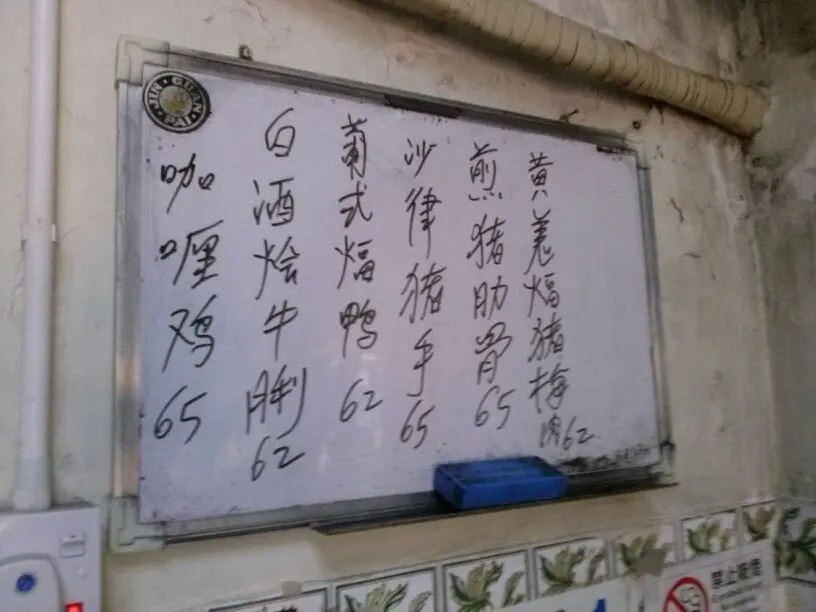 JIN · GUAN · PAI
咖喱鸡 65
白酒烩牛脷 62
葡式煏鸭 62
沙律猪手 65
煎猪肋骨 65
黄羌煏猪梅肉 62
禁止吸煙